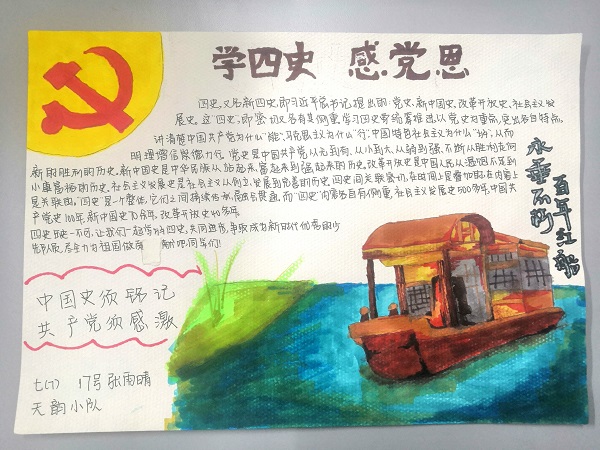 学四史 感党恩
四史,又名新四史,即习近平总书记提出的:党史、新中国史、改革开放史、社会主义发
展史。这"四史",即密切又各有侧重,学习四史要结合推进,以党史为重点,突出各自特点。
讲清楚中国共产党为什么"能"、马克思主义为什么"行"、中国特色社会主义为什么,从而
明理增信崇德力行。党史是中国共产党从无到有、从小到大、从弱到强、不断从胜利走向
新的胜利的历史,新中国史是中华民族从站起来、富起来到强起来的历史,改革开放史是中国人民从温饱不足到
小康富裕的历史,社会主义发展史是社会主义从创立、发展到完善的历史,四史间关联密切,在时间上是叠加的,在内容上
是关联的,"四史"是一个整体,它们之间持续,而"四史"内容各自有侧重,社会主义发展史500多年,中国共
产党史100年,新中国史70余年,改革开放史40多年。
四史一不可,让我们一起学好四史,共同进步,争取成为新时代优秀的少
先队员,尽全力为祖国做献吧,同学们!
百年红船
永垂不朽
中国史须铭记
共产党须感激
七(7) 17号 张雨晴
天韵小队